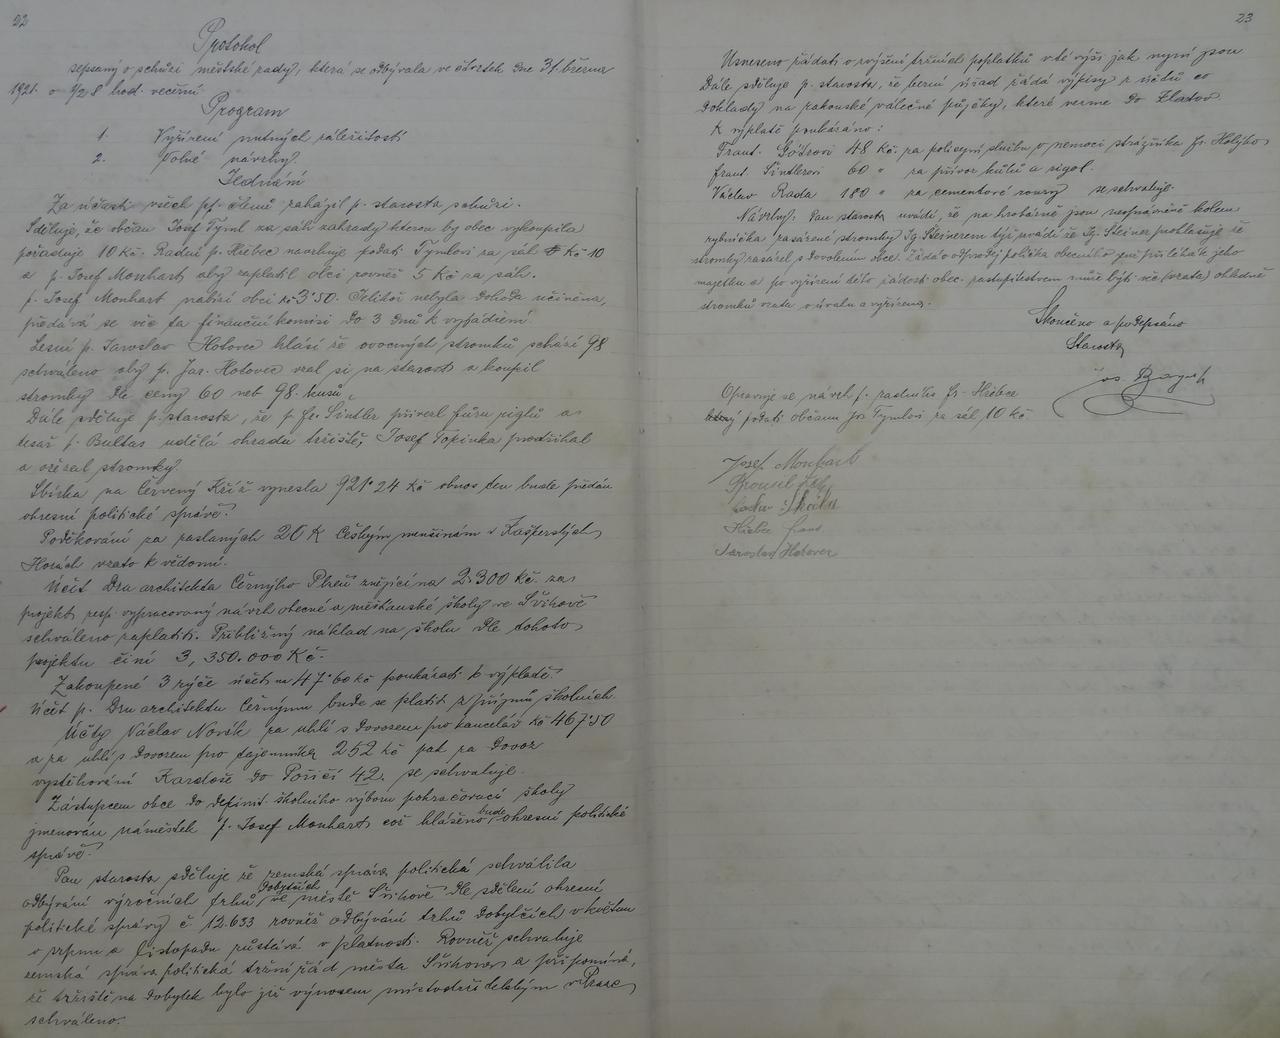 22
Protokol
sepsaný o schůzi městské rady, která se odbývala ve čtvrtek dne 31. března
1921. o 1/2 8 hod. večerní
Program
1. Vyřízení nutných záležitostí
2. Volné návrhy.
Jednání
Za účasti všech pp. členů zahájil p. starosta schůzi.
Sděluje, že občan Josef Tyml za sáh zahrady kterou by obec vykoupila
požaduje 10 Kč. Radní p. Hřebec navrhuje podati Tymlovi za sáh Kč 10
a p. Josef Monhart aby zaplatil obci rovněž 5 Kč za sáh.
p. Josef Monhart nabízí obci Kč 3·50. Jelikož nebyla dohoda učiněna,
předává se věc ta finanční komisi do 3 dnů k vyjádření.
Lesní p. Jaroslav Hotovec hlásí že ovocných stromků schází 98
schváleno aby p. Jar. Hotovec vzal si na starost a koupil
stromky dle ceny 60 neb 98 kusů.
Dále sděluje p. starosta, že p. Fr. Šintler přivezl fůru riglů a
tesař p. Bultas udělá ohradu tržiště, Josef Topinka prostříhal
a ořezal stromky.
Sbírka na Červený Kříž vynesla 921·24 Kč obnos ten bude předán
okresní politické správě.
Poděkování za zaslaných 20 K Českým menšinám v Kašperských
Horách vzato k vědomí.
Účet Dra architekta Černýho Plzeň znějící na 2.300 Kč. za
projekt resp. vypracovaný návrh obecné a měšťanské školy ve Švihově
schváleno zaplatiti. Přibližný náklad na školu dle tohoto
projektu činí 3,350.000 Kč.
Zakoupené 3 rýče účet na 47·60 Kč poukázati k výplatě.
Účet p. Dra architekta Černýmu bude se platit z příjmů školních
Účty Václav Novák za uhlí s dovozem pro kancelář Kč 467·50
a za uhlí s dovozem pro tajemníka 252 Kč pak za dovoz
vystěhování Kardoše do Poříčí 42. se schvaluje.
Zástupcem obce do definit. školního výboru pokračovací školy
jmenován náměstek p. Josef Monhart, což hlášeno bude okresní politické
správě.
Pan starosta sděluje že zemská správa politická schválila
odbývání výročních trhů dobytčích ve městě Švihově dle sdělení okresní
politické správy č 12.633 rovněž odbývání trhů dobytčích v květnu
v srpnu a listopadu zůstává v platnosti. Rovněž schvaluje
zemská správa politická tržní řád města Švihova a připomíná,
že tržiště na dobytek bylo již výnosem místodržitelským v Praze
schváleno.
23
Usneseno žádati o zvýšení tržních poplatků v té výši jak nyní jsou
Dále sděluje p. starosta, že berní úřad žádá výpisy z účtů co
doklady na rakouské válečné půjčky, které vezme do Klatov.
K výplatě poukázáno:
Frant. Götzovi 48 Kč za policejní službu v nemoci strážníka Fr. Holýho
Frant. Šintlerovi 60 " za přívoz kůlů a rigol.
Václav Rada 180 " za cementové roury se schvaluje.
Návrhy: Pan starosta uvádí, že na hrobárně jsou neoprávněně kolem
rybníčka zasázené stromky Ig. Steinerem týž uvádí že Ig. Steiner prohlašuje že
stromky zasázel s dovolením obce. Žádá o odprodej políčka obecního prý příležitě jeho
majetku a po vyřízení této žádosti obec. zastupitelstvem může býti věc (vzata) ohledně
stromků vzata v úvahu a vyřízena.
Skončeno a podepsáno
Starosta
Opravuje se návrh p. radního Fr. Hřebce
který podati občanu Jos Tymlovi za sáh 10 Kč.
Josef Monhart
Hřebec Frant
Jaroslav Hotovec